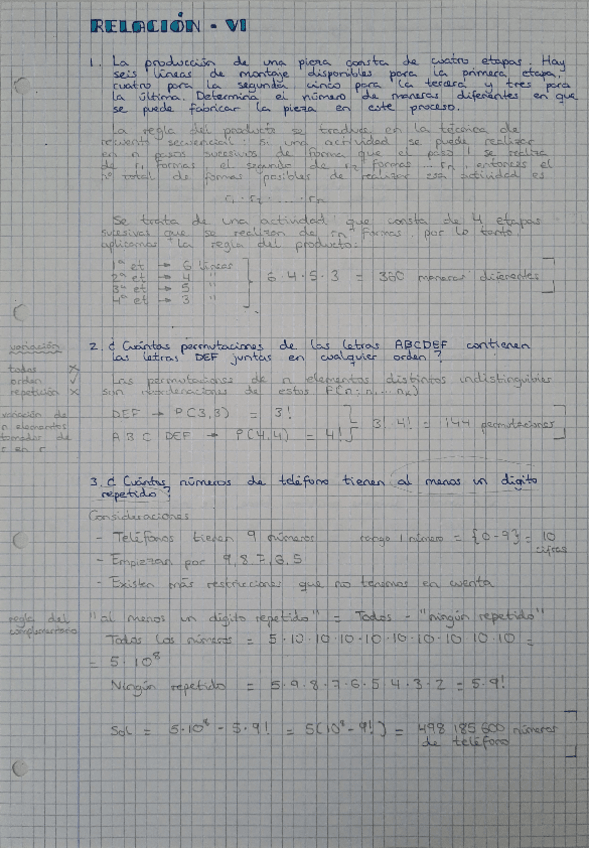 RELACIÓN - VI
1. La producción de una pieza consta de cuatro etapas. Hay
seis líneas de montaje disponibles para la primera etapa,
cuatro para la segunda cinco para la tercera y tres para
la última. Determina el número de maneras diferentes en que
se puede fabricar la pieza en este proceso.
La regla del producto se traduce en la técnica de
recuento secuencial: si una actividad se puede realizar
en n pasos sucesivos de forma que el paso 1 se realiza
de r₁ formas el segundo de r₂ formas ... rn, entonces el
nº total de formas posibles de realizar esa actividad es
r₁ · r₂ · ... · rn
Se trata de una actividad que consta de 4 etapas
sucesivas que se realizan de rn formas, por lo tanto,
aplicamos la regla del producto:
1ª et → 6 líneas
2ª et → 4 "
3ª et → 5 "
4ª et → 3 "
6 · 4 · 5 · 3 = 360 maneras diferentes
variación
todos x
orden ✓
repetición x
variación de
n elementos
tomados de
r en r
2. ¿Cuántas permutaciones de las letras ABCDEF contienen
las letras DEF juntas en cualquier orden?
Las permutaciones de n elementos distintos indistinguibles
son reordenaciones de estos P(n; n₁ ... nk)
DEF → P(3,3) = 3!
A B C DEF → P(4,4) = 4!
3! 4! = 144 permutaciones
3. ¿Cuántos números de teléfono tienen al menos un dígito
repetido?
Consideraciones
- Teléfonos tienen 9 números rango 1 número = {0-9} = 10
cifras
- Empiezan por 9, 8, 7, 6, 5
- Existen más restricciones que no tenemos en cuenta
regla del
complementario
"al menos un dígito repetido" = Todos - "ningún repetido"
Todos los números = 5 · 10 · 10 · 10 · 10 · 10 · 10 · 10 · 10 =
= 5 · 10⁸
Ningún repetido = 5 · 9 · 8 · 7 · 6 · 5 · 4 · 3 · 2 = 5 · 9!
Sol = 5·10⁸ - 5·9! = 5(10⁸ - 9!) = 498 185 600 números
de teléfono